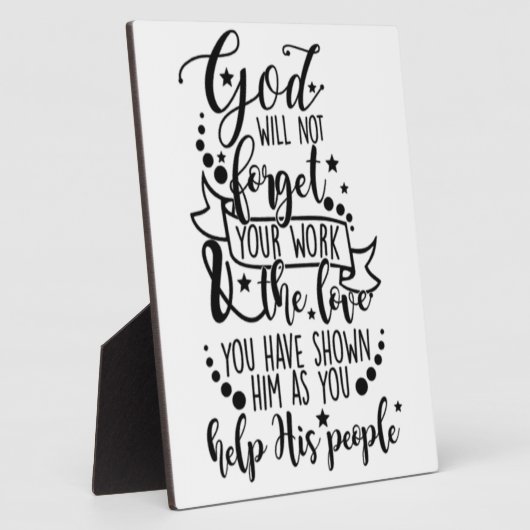 God
WILL NOT
forget
YOUR WORK
& the love
YOU HAVE SHOWN
HIM AS YOU
help His people